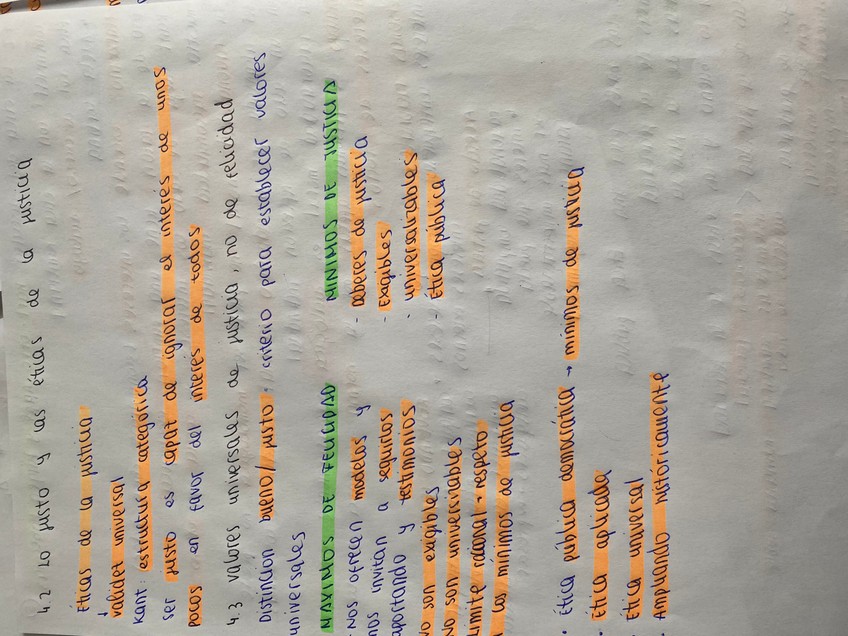 4.2 Lo justo y las éticas de la justicia
Éticas de la justicia
validez universal
Kant: estructura categórica
ser justo es capaz de ignorar el interés de unos
pocos en favor del interés de todos
4.3 valores universales de justicia, no de felicidad
Distinción bueno/justo: criterio para establecer valores
universales
MÁXIMOS DE FELICIDAD
- Nos ofrecen modelos y
nos invitan a seguirlos
aportando y testimonios
no son exigibles
no son universables
límite racional → respeto
los mínimos de justicia
MÍNIMOS DE JUSTICIA
- Deberes de justicia
- Exigibles
- universalizables
- Ética pública
· Ética pública democrática → mínimos de justicia
- Ética aplicada
- Ética universal
- Ampliando históricamente